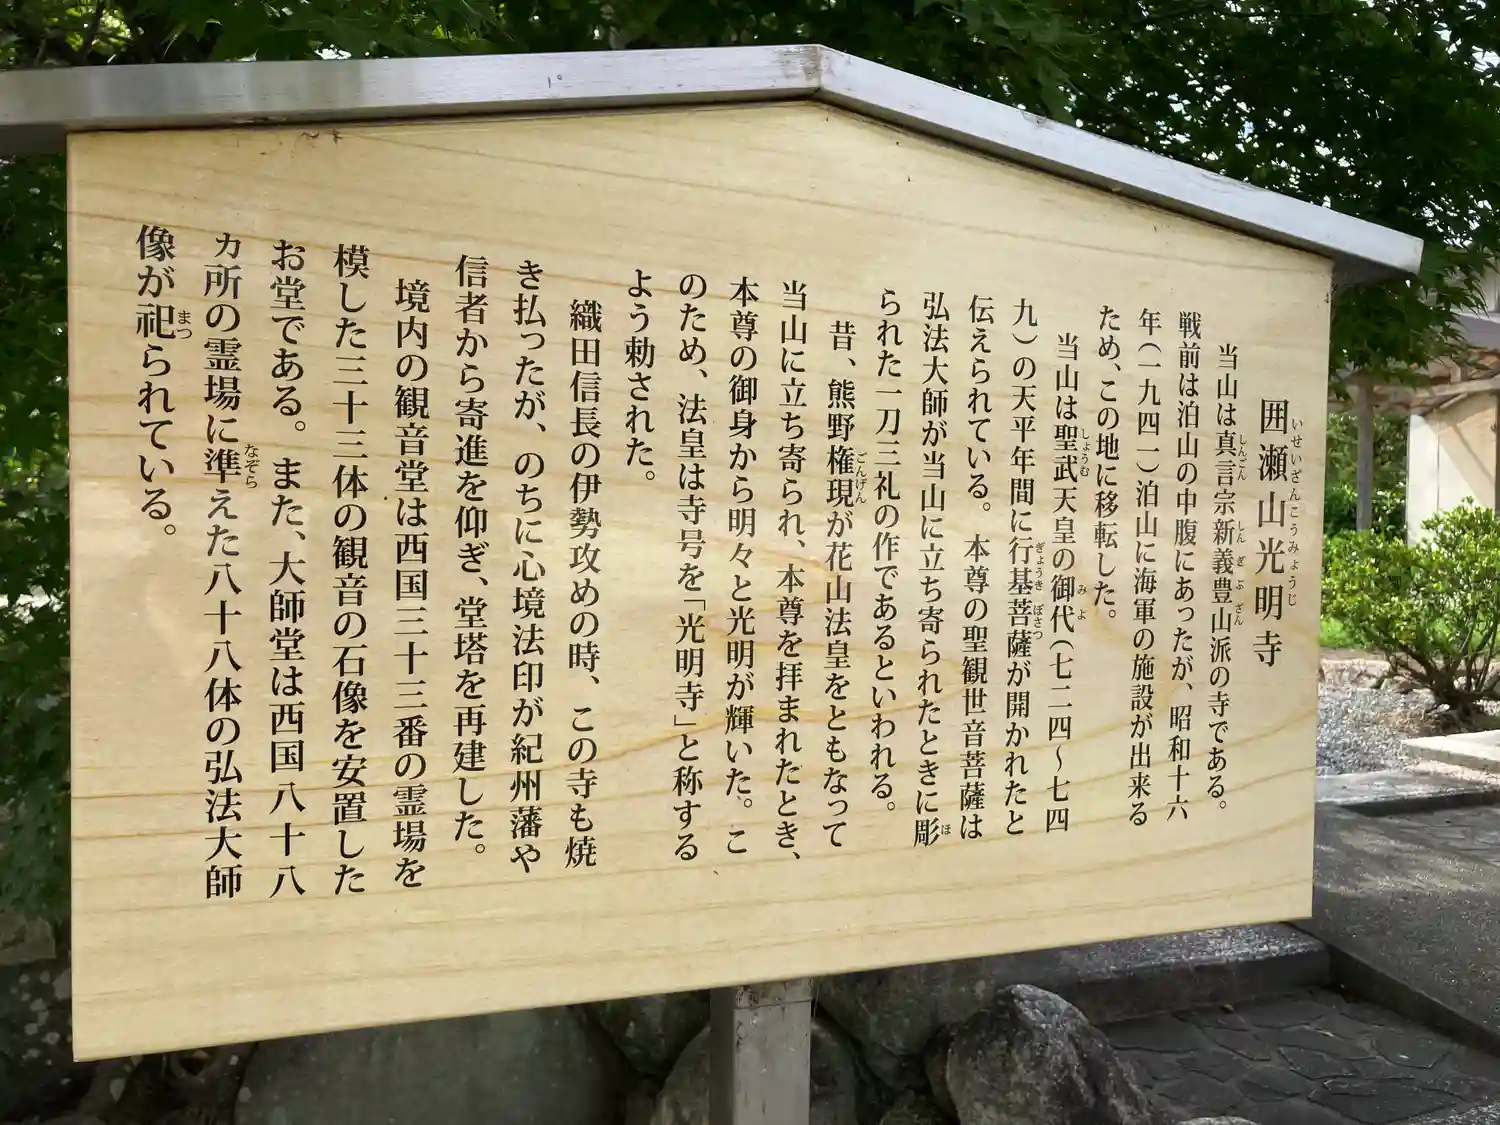 囲瀬山光明寺
いせいざんこうみょうじ
当山は真言宗新義豊山派の寺である。
しんごん
しんぎぶざん
戦前は泊山の中腹にあったが、昭和十六
年(一九四一)泊山に海軍の施設が出来る
ため、この地に移転した。
当山は聖武天皇の御代(七二四〜七四
しょうむ
みよ
九)の天平年間に行基菩薩が開かれたと
ぎょうき
ぼさつ
伝えられている。本尊の聖観世音菩薩は
弘法大師が当山に立ち寄られたときに彫
ほ
られた一刀三礼の作であるといわれる。
昔、熊野権現が花山法皇をともなって
ごんげん
当山に立ち寄られ、本尊を拝まれたとき、
本尊の御身から明々と光明が輝いた。こ
のため、法皇は寺号を「光明寺」と称する
よう勅された。
織田信長の伊勢攻めの時、この寺も焼
き払ったが、のちに心境法印が紀州藩や
信者から寄進を仰ぎ、堂塔を再建した。
境内の観音堂は西国三十三番の霊場を
模した三十三体の観音の石像を安置した
お堂である。また、大師堂は西国八十八
カ所の霊場に準えた八十八体の弘法大師
なぞら
像が祀られている。
まつ